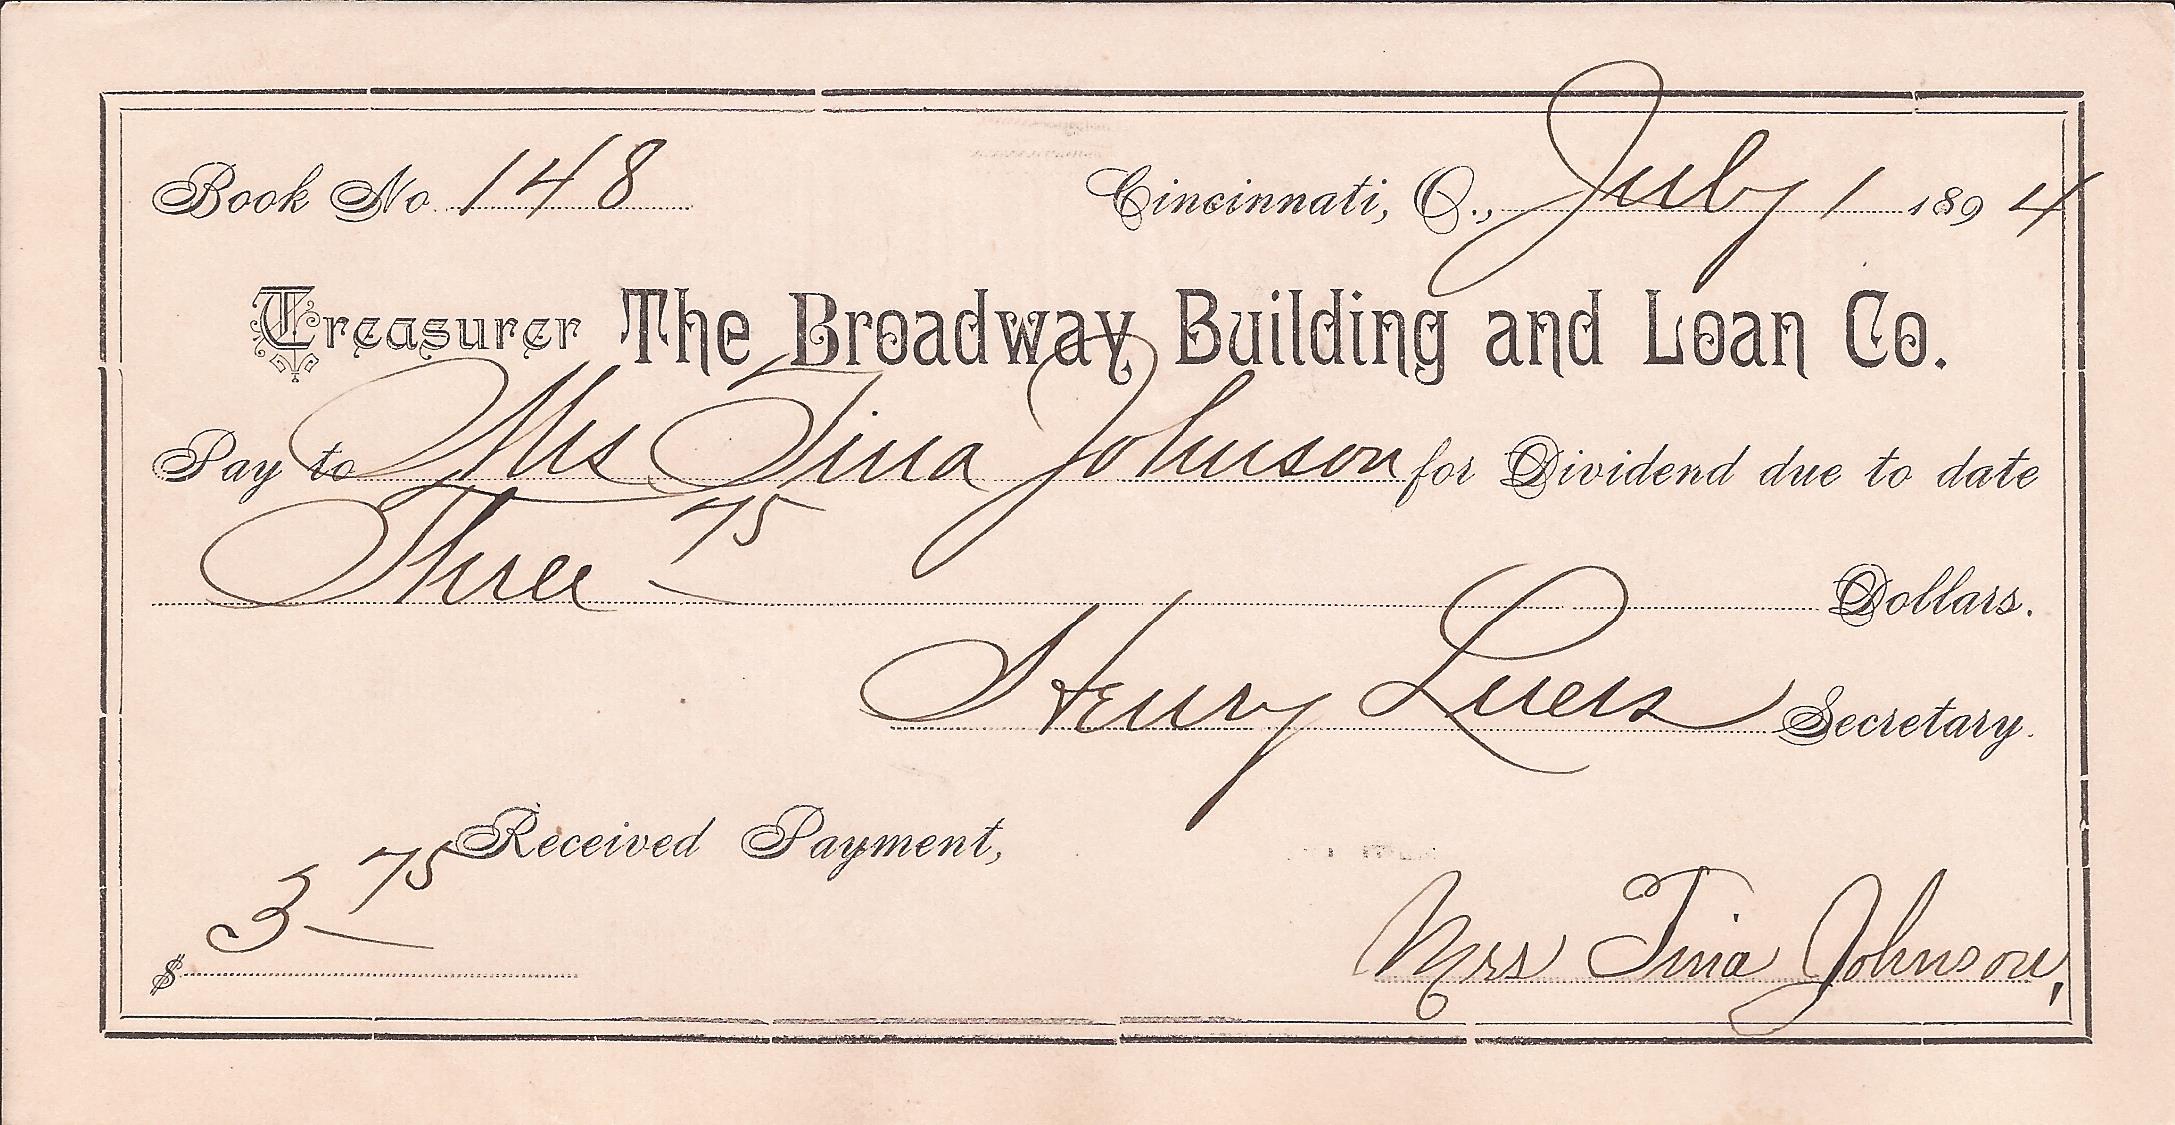 Book No. 148 Cincinnati, O., July 1 1894
Treasurer The Broadway Building and Loan Co.
Pay to Mrs Tina Johnson for Dividend due to date
Three 75 Dollars.
Henry Luers Secretary.
Received Payment,
$ 3 75
Mrs Tina Johnson,